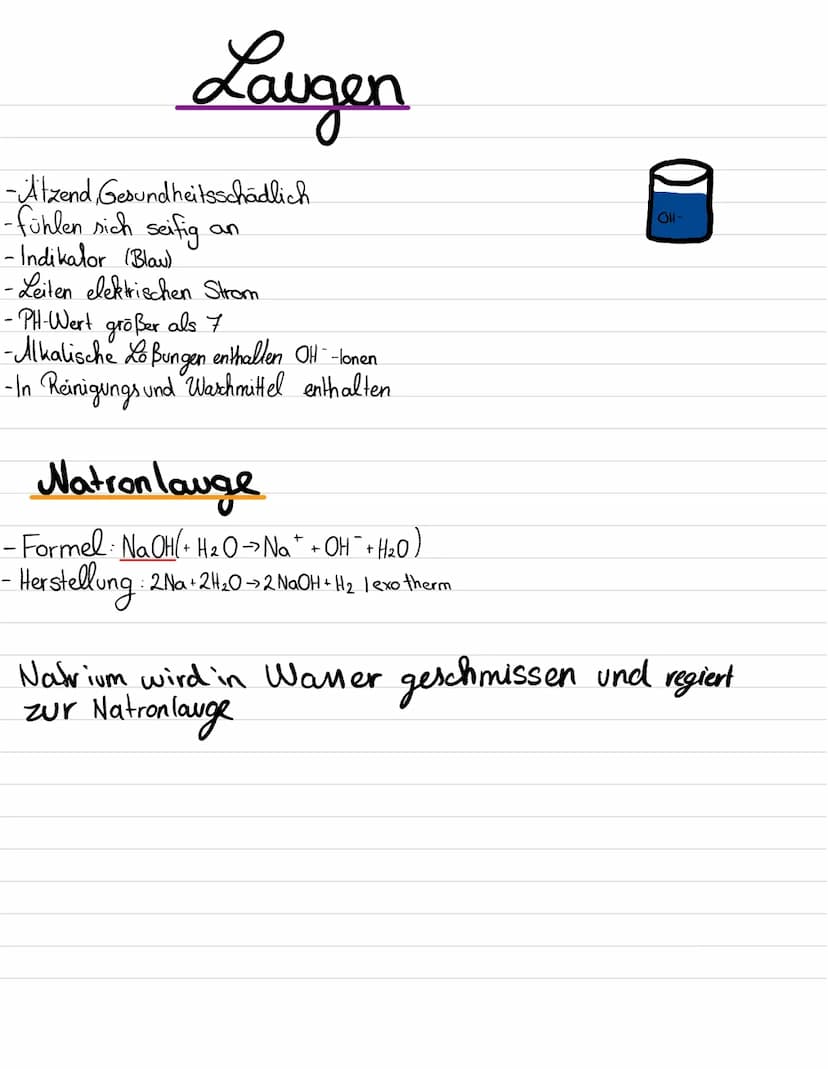 Laugen
-Ätzend, Gesundheitsschädlich
-fühlen sich seifig an
- Indikator (Blau)
- Leiten elektrischen Strom
- PH-Wert größer als 7
-Alkalische Lößungen enthalten OH⁻-Ionen
-In Reinigungs und Waschmittel enthalten
OH-
Natronlauge
- Formel: NaOH(+ H₂O → Na⁺ + OH⁻ + H₂O)
- Herstellung: 2Na + 2H₂O → 2NaOH + H₂ | exotherm
Natrium wird in Wasser geschmissen und regiert
zur Natronlauge